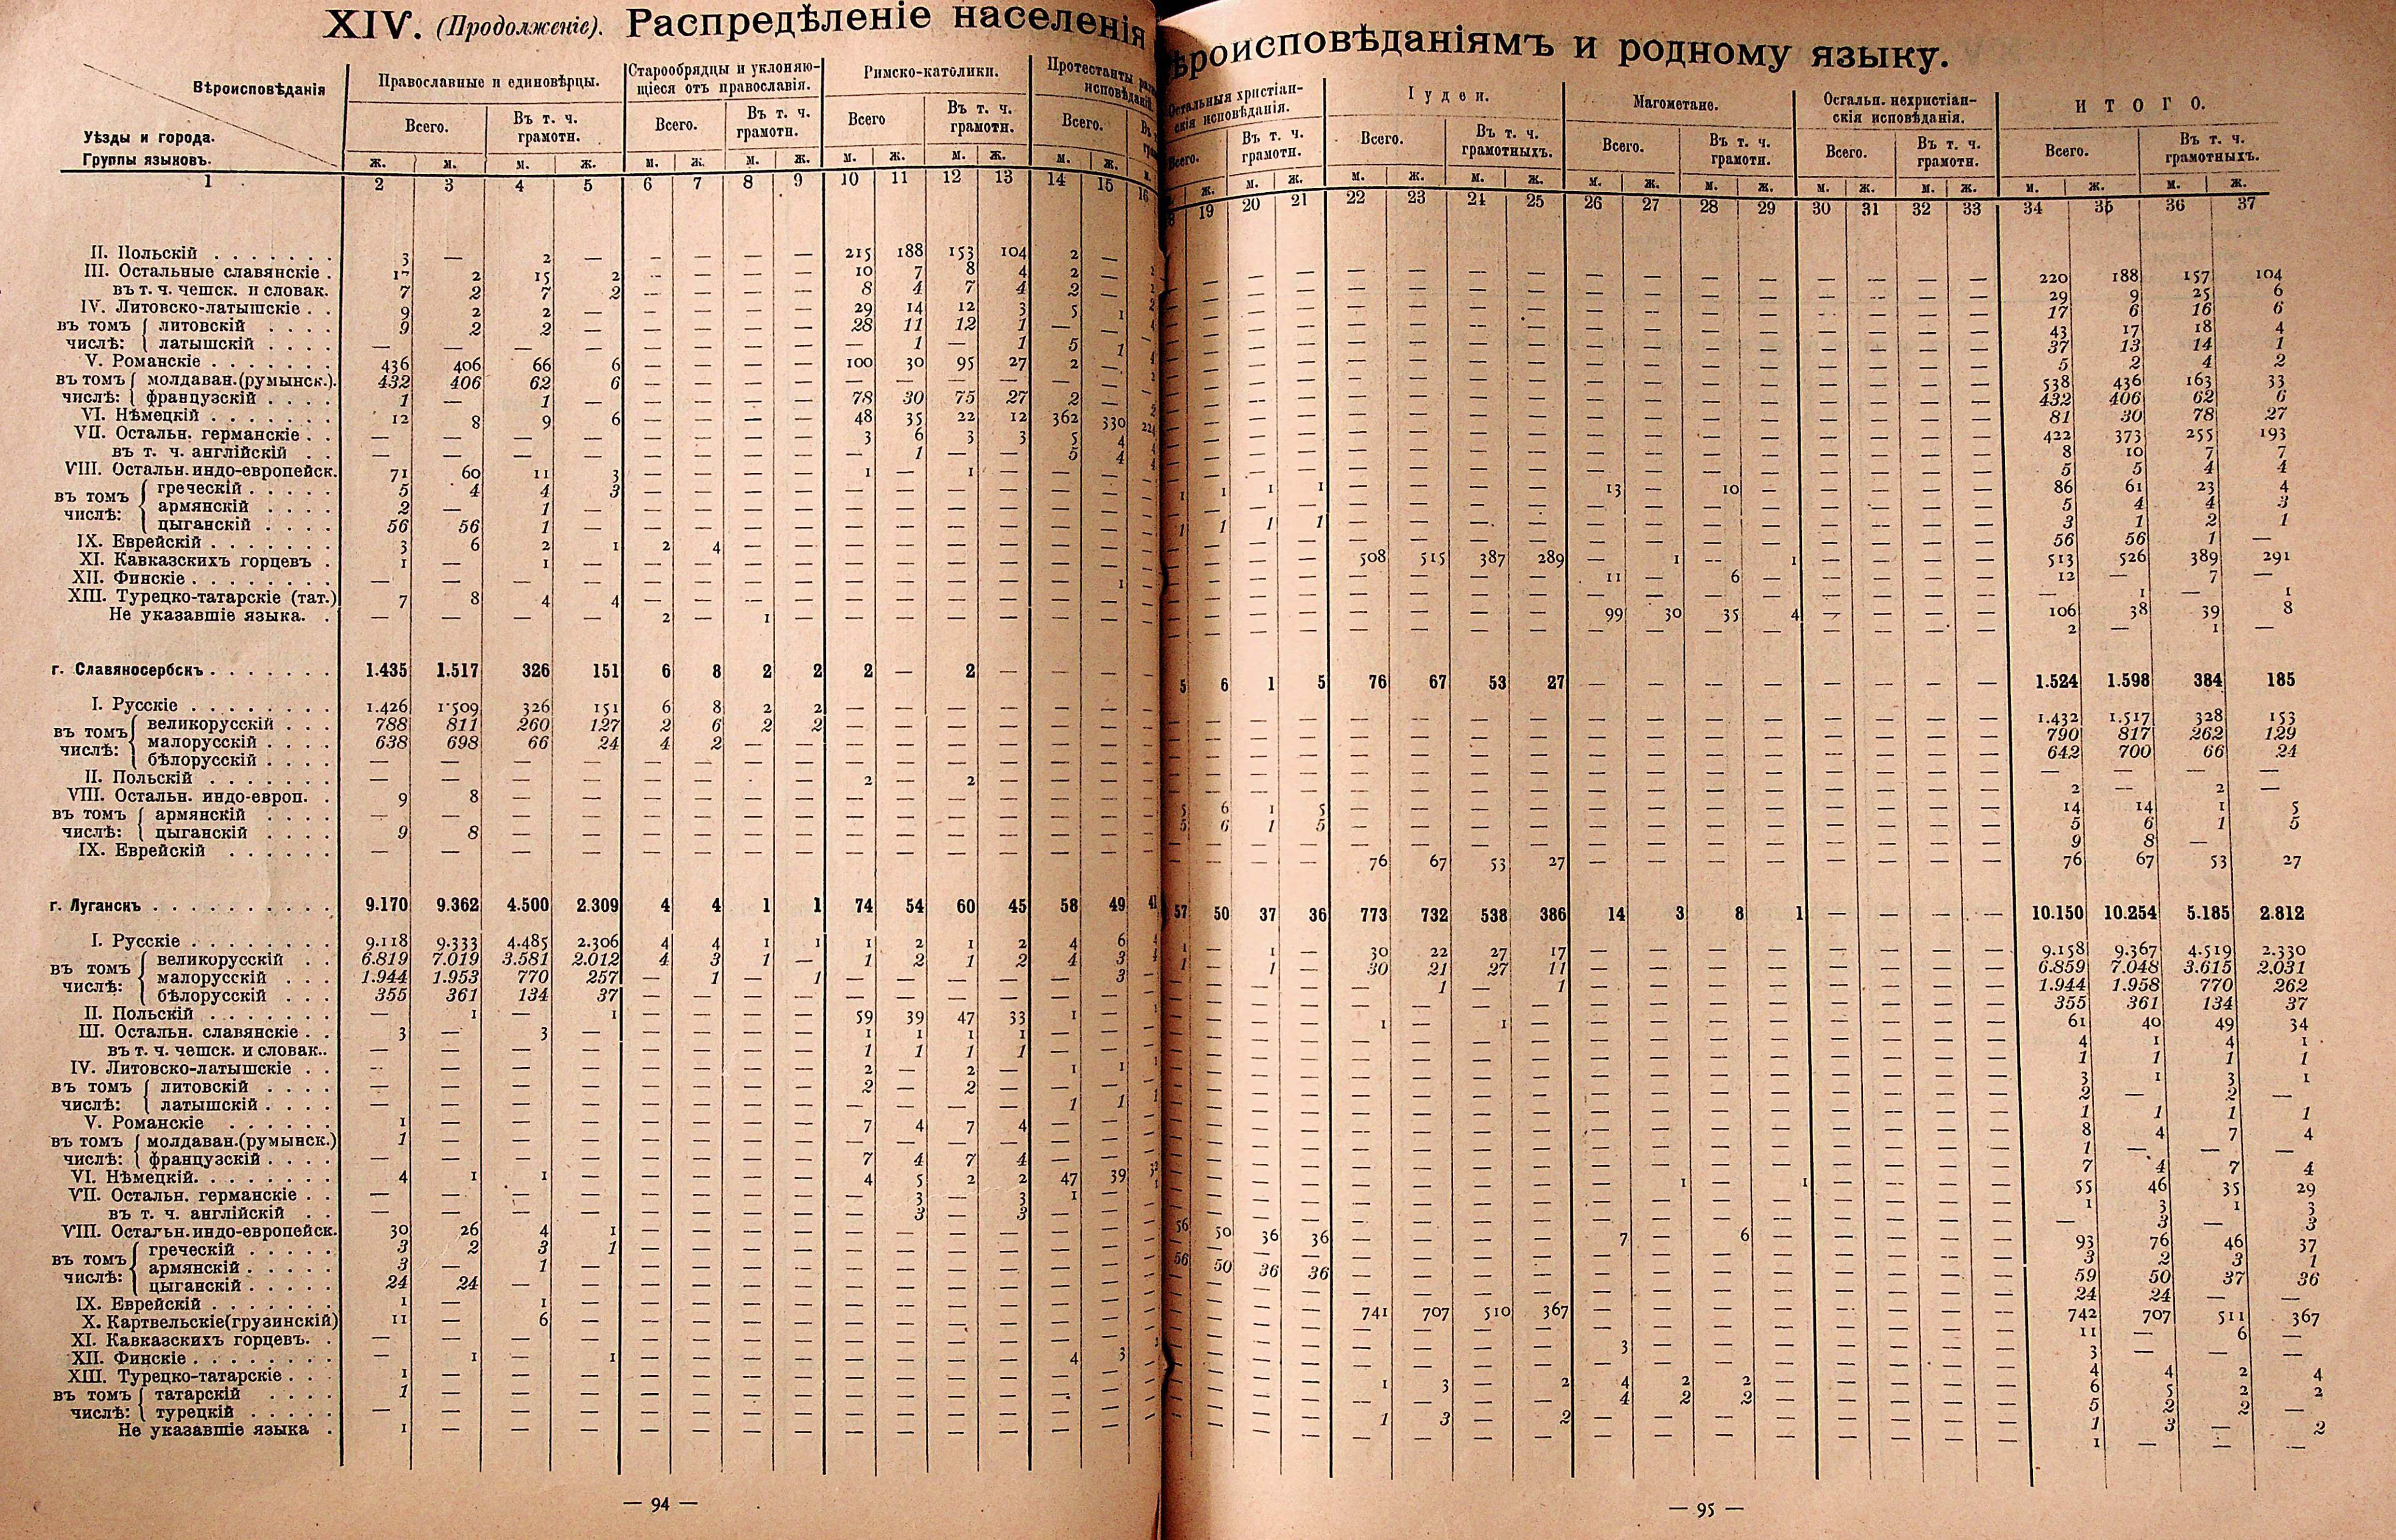 XIV. (Продолженіе). Распредѣленіе населенія
Вѣроисповѣданія
Уѣзды и города.
Группы языковъ.
Православные и единовѣрцы.
Старообрядцы и уклоняю-
щіеся отъ православія.
Римско-католики.
Протестанты
исповѣданій
Всего. Въ т. ч. грамотн. Всего. Въ т. ч. грамотн. Всего Въ т. ч. грамотн. Всего.
ж. м. м. ж. м. ж. м. ж. м. ж. м. ж. м. ж. м.
1 2 3 4 5 6 7 8 9 10 11 12 13 14 15 16
II. Польскій . . . . . . . 3 — 2 — — — — — 215 188 153 104 2 —
III. Остальные славянскіе . 17 2 15 2 — — — — 10 7 8 4 2 —
въ т. ч. чешск. и словак. 7 2 7 2 — — — — 8 4 7 4 2 —
IV. Литовско-латышскіе . . 9 2 2 — — — — — 29 14 12 3 5 1
въ томъ числѣ: литовскій . . . . 9 2 2 — — — — — 28 11 12 1 — —
латышскій . . . . — — — — — — — — — 1 — 1 5 1
V. Романскіе . . . . . . . 436 406 66 6 — — — — 100 30 95 27 2 —
въ томъ числѣ: молдаван.(румынск.). 432 406 62 6 — — — — — — — — — —
французскій . . . . 1 — 1 — — — — — 78 30 75 27 2 —
VI. Нѣмецкій . . . . . . . 12 8 9 6 — — — — 48 35 22 12 362 330
VII. Остальн. германскіе . . — — — — — — — — 3 6 3 3 5 4
въ т. ч. англійскій . . — — — — — — — — — 1 — — 5 4
VIII. Остальн. индо-европейск. 71 60 11 3 — — — — 1 — 1 — — —
въ томъ числѣ: греческій . . . . . 5 4 4 3 — — — — — — — — — —
армянскій . . . . 2 — 1 — — — — — — — — — — —
цыганскій . . . . 56 56 1 — — — — — — — — — — —
IX. Еврейскій . . . . . . . 3 6 2 1 2 4 — — — — — — — —
XI. Кавказскихъ горцевъ . 1 — 1 — — — — — — — — — — —
XII. Финскіе . . . . . . . . — — — — — — — — — — — — — 1
XIII. Турецко-татарскіе (тат.) 7 8 4 4 — — — — — — — — — —
Не указавшіе языка. . — — — — 2 — 1 — — — — — — —
г. Славяносербскъ . . . . . . . 1.435 1.517 326 151 6 8 2 2 2 — 2 — — —
I. Русскіе . . . . . . . . 1.426 1·509 326 151 6 8 2 2 — — — — — —
въ томъ числѣ: великорусскій . . . 788 811 260 127 2 6 2 2 — — — — — —
малорусскій . . . . 638 698 66 24 4 2 — — — — — — — —
бѣлорусскій . . . . — — — — — — — — — — — — — —
II. Польскій . . . . . . . — — — — — — — — 2 — 2 — — —
VIII. Остальн. индо-европ. . 9 8 — — — — — — — — — — — —
въ томъ числѣ: армянскій . . . . — — — — — — — — — — — — — —
цыганскій . . . . 9 8 — — — — — — — — — — — —
IX. Еврейскій . . . . . . — — — — — — — — — — — — — —
г. Луганскъ . . . . . . . . . . 9.170 9.362 4.500 2.309 4 4 1 1 74 54 60 45 58 49
I. Русскіе . . . . . . . . 9.118 9.333 4.485 2.306 4 4 1 1 1 2 1 2 4 6
въ томъ числѣ: великорусскій . . 6.819 7.019 3.581 2.012 4 3 1 — 1 2 1 2 4 3
малорусскій . . . 1.944 1.953 770 257 — 1 — 1 — — — — — 3
бѣлорусскій . . . 355 361 134 37 — — — — — — — — — —
II. Польскій . . . . . . . — 1 — 1 — — — — 59 39 47 33 1 —
III. Остальн. славянскіе . . 3 — 3 — — — — — 1 1 1 1 — —
въ т. ч. чешск. и словак.. — — — — — — — — 1 1 1 1 — —
IV. Литовско-латышскіе . . — — — — — — — — 2 — 2 — 1 1
въ томъ числѣ: литовскій . . . . — — — — — — — — 2 — 2 — — —
латышскій . . . . — — — — — — — — — — — — 1 1
V. Романскіе . . . . . . 1 — — — — — — — 7 4 7 4 — —
въ томъ числѣ: молдаван.(румынск.) 1 — — — — — — — — — — — — —
французскій . . . . — — — — — — — — 7 4 7 4 — —
VI. Нѣмецкій. . . . . . . . 4 1 1 — — — — — 4 5 2 2 47 39
VII. Остальн. германскіе . . — — — — — — — — — 3 — 3 1 —
въ т. ч. англійскій . . — — — — — — — — — 3 — 3 — —
VIII. Остальн. индо-европейск. 30 26 4 1 — — — — — — — — — —
въ томъ числѣ: греческій . . . . . 3 2 3 1 — — — — — — — — — —
армянскій . . . . . 3 — 1 — — — — — — — — — — —
цыганскій . . . . . 24 24 — — — — — — — — — — — —
IX. Еврейскій . . . . . . . 1 — 1 — — — — — — — — — — —
X. Картвельскіе(грузинскій) 11 — 6 — — — — — — — — — — —
XI. Кавказскихъ горцевъ. . — — — — — — — — — — — — — —
XII. Финскіе . . . . . . . . — 1 — 1 — — — — — — — — 4 3
XIII. Турецко-татарскіе . . . 1 — — — — — — — — — — — — —
въ томъ числѣ: татарскій . . . . 1 — — — — — — — — — — — — —
турецкій . . . . . — — — — — — — — — — — — — —
Не указавшіе языка . 1 — — — — — — — — — — — — —
— 94 —
ѣроисповѣданіямъ и родному языку.
Остальныя христіан-
скія исповѣданія.
Іудеи.
Магометане.
Остальн. нехристіан-
скія исповѣданія.
ИТОГО.
Всего. Въ т. ч. грамотн. Всего. Въ т. ч. грамотныхъ. Всего. Въ т. ч. грамотн. Всего. Въ т. ч. грамотн. Всего. Въ т. ч. грамотныхъ.
ж. м. ж. м. ж. м. ж. м. ж. м. ж. м. ж. м. ж. м. ж. м. ж.
19 20 21 22 23 24 25 26 27 28 29 30 31 32 33 34 35 36 37
— — — — — — — — — — — — — — — — 220 188 157 104
— — — — — — — — — — — — — — — — 29 9 25 6
— — — — — — — — — — — — — — — — 17 6 16 6
— — — — — — — — — — — — — — — — 43 17 18 4
— — — — — — — — — — — — — — — — 37 13 14 1
— — — — — — — — — — — — — — — — 5 2 4 2
— — — — — — — — — — — — — — — — 538 436 163 33
— — — — — — — — — — — — — — — — 432 406 62 6
— — — — — — — — — — — — — — — — 81 30 78 27
— — — — — — — — — — — — — — — — 422 373 255 193
— — — — — — — — — — — — — — — — 8 10 7 7
— — — — — — — — — — — — — — — — 5 5 4 4
1 1 1 1 — — — — 13 — 10 — — — — — 86 61 23 4
— — — — — — — — — — — — — — — — 5 4 4 3
1 1 1 1 — — — — — — — — — — — — 3 1 2 1
— — — — — — — — — — — — — — — — 56 56 1 —
— — — — 508 515 387 289 — 1 — 1 — — — — 513 526 389 291
— — — — — — — — 11 — 6 — — — — — 12 — 7 —
— — — — — — — — — — — — — — — — — 1 — 1
— — — — — — — — 99 30 35 4 — — — — 106 38 39 8
— — — — — — — — — — — — — — — — 2 — 1 —
5 6 1 5 76 67 53 27 — — — — — — — — 1.524 1.598 384 185
— — — — — — — — — — — — — — — — 1.432 1.517 328 153
— — — — — — — — — — — — — — — — 790 817 262 129
— — — — — — — — — — — — — — — — 642 700 66 24
— — — — — — — — — — — — — — — — — — — —
— — — — — — — — — — — — — — — — 2 — 2 —
5 6 1 5 — — — — — — — — — — — — 14 14 1 5
5 6 1 5 — — — — — — — — — — — — 5 6 1 5
— — — — — — — — — — — — — — — — 9 8 —
— — — — 76 67 53 27 — — — — — — — — 76 67 53 27
57 50 37 36 773 732 538 386 14 3 8 1 — — — — 10.150 10.254 5.185 2.812
1 — 1 — 30 22 27 17 — — — — — — — — 9.158 9.367 4.519 2.330
1 — 1 — 30 21 27 11 — — — — — — — — 6.859 7.048 3.615 2.031
— — — — — 1 — 1 — — — — — — — — 1.944 1.958 770 262
— — — — — — — — — — — — — — — — 355 361 134 37
— — — — 1 — 1 — — — — — — — — — 61 40 49 34
— — — — — — — — — — — — — — — — 4 1 4 1
— — — — — — — — — — — — — — — — 1 1 1 1
— — — — — — — — — — — — — — — — 3 1 3 1
— — — — — — — — — — — — — — — — 2 — 2 —
— — — — — — — — — — — — — — — — 1 1 1 1
— — — — — — — — — — — — — — — — 8 4 7 4
— — — — — — — — — — — — — — — — 1 — — —
— — — — — — — — — — — — — — — — 7 4 7 4
— — — — — — — — — 1 — 1 — — — — 55 46 35 29
— — — — — — — — — — — — — — — — 1 3 1 3
— — — — — — — — — — — — — — — — — 3 — 3
56 50 36 36 — — — — 7 — 6 — — — — — 93 76 46 37
— — — — — — — — — — — — — — — — 3 2 3 1
56 50 36 36 — — — — — — — — — — — — 59 50 37 36
— — — — — — — — — — — — — — — — 24 24 — —
— — — — 741 707 510 367 — — — — — — — — 742 707 511 367
— — — — — — — — — — — — — — — — 11 — 6 —
— — — — — — — — 3 — — — — — — — 3 — — —
— — — — — — — — — — — — — — — — 4 4 2 4
— — — — 1 3 — 2 4 2 2 — — — — — 6 5 2 2
— — — — — — — — 4 2 2 — — — — — 5 2 2 —
— — — — 1 3 — 2 — — — — — — — — 1 3 — 2
— — — — — — — — — — — — — — — — 1 — — —
— 95 —